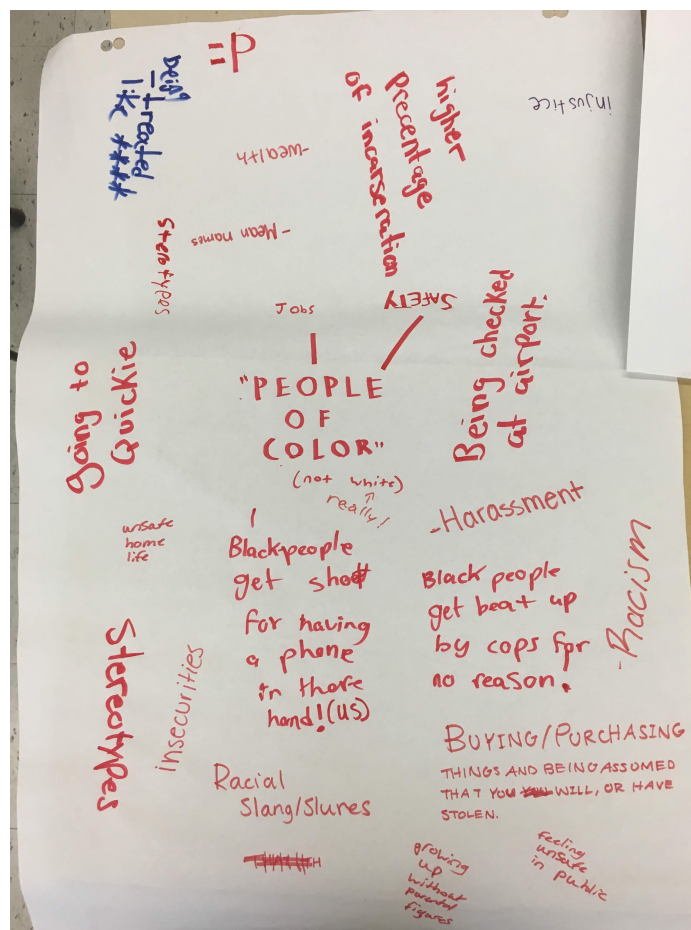 =P
being treated
like ****
higher
precentage
of incarseration
injustice
-wealth
-Mean names
Sterotypes
Jobs
SAFETY
Being checked
at airport.
going to
Quickie
"PEOPLE
OF
COLOR"
(not white)
really!
-Harassment
unsafe
home
life
Black people
get shot
for having
a phone
in there
hand! (US)
Black people
get beat up
by cops for
no reason.
-Racism
Stereotypes
insecurities
Racial
Slang/Slures
BUYING/PURCHASING
THINGS AND BEING ASSUMED
THAT YOU WILL, OR HAVE
STOLEN.
growing
up
without
parental
figures
feeling
unsafe
in public